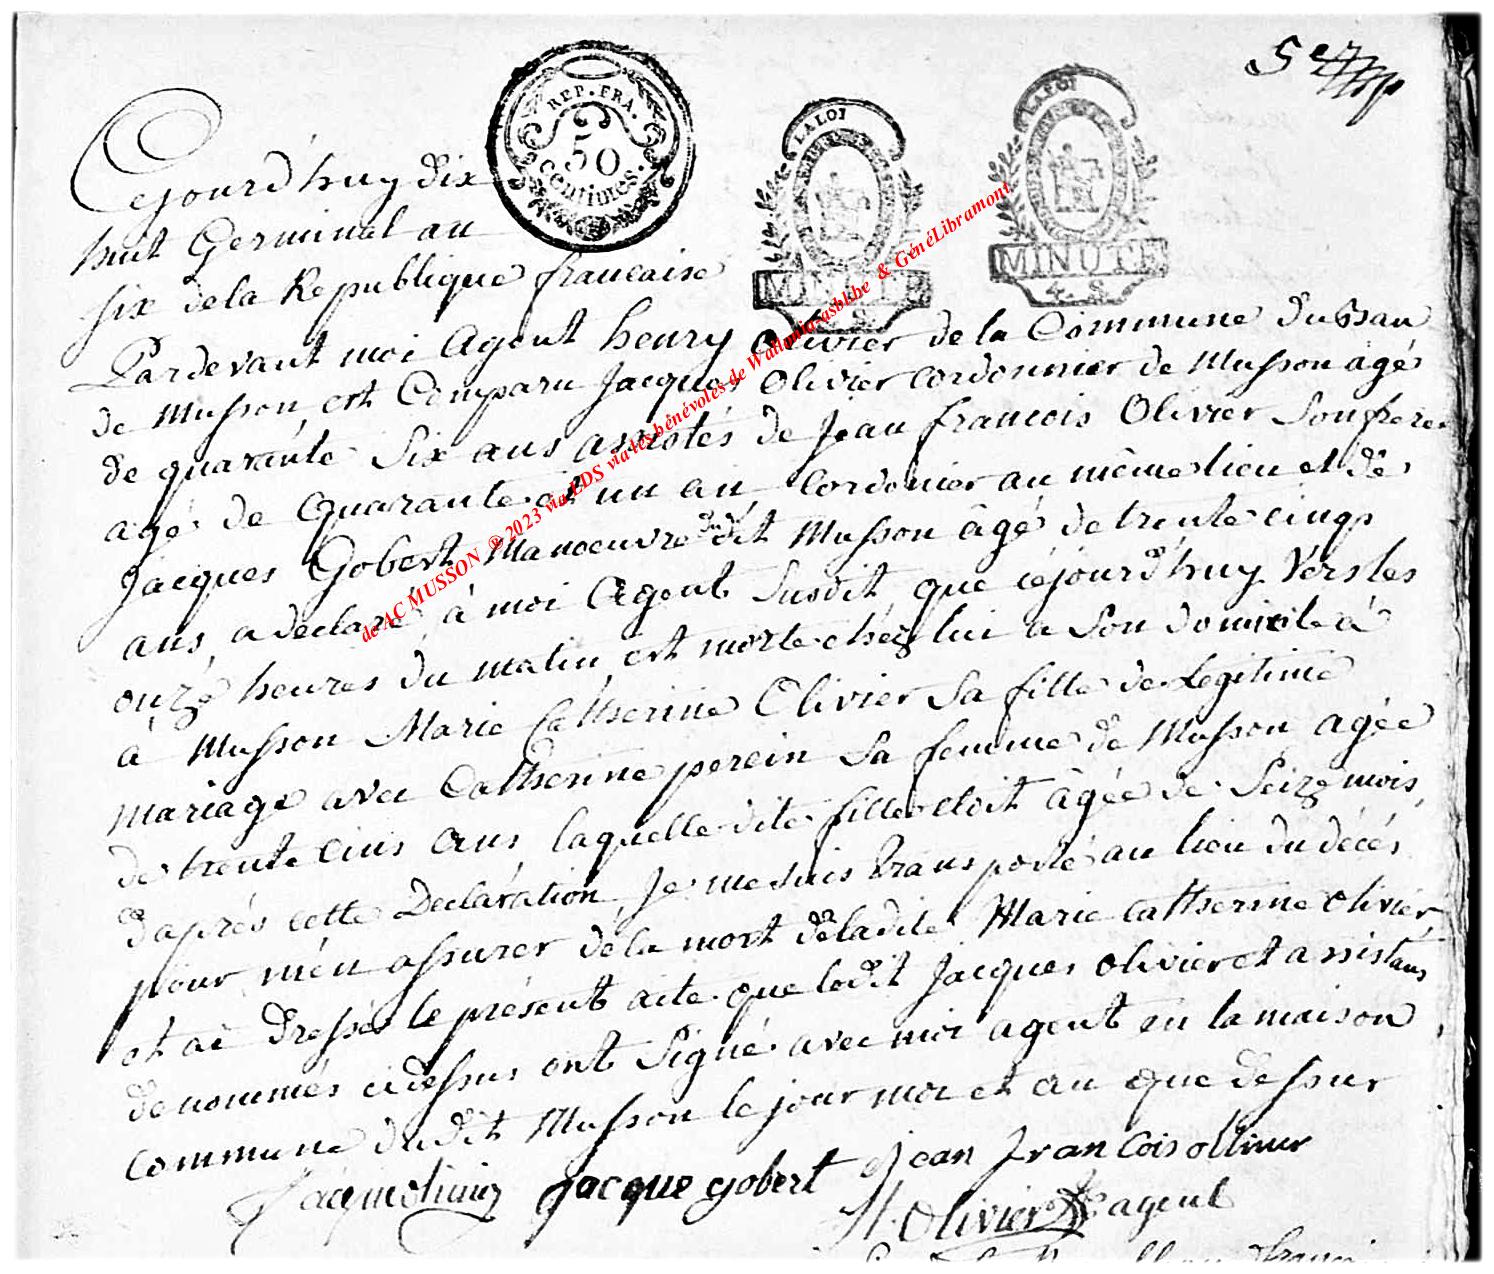 5e
REP. FRA.
50
centimes.
LA LOI
MINUTE
LA LOI
MINUTE
4. S.
Cejourd'huy dix
huit Germinal an
six dela Republique francaise
Pardevant moi Agent henry Olivier de la Commune du Ban
de Musson, est Comparu Jacques Olivier cordonnier de Musson agé
de quarante Six ans assistés de Jean francois Olivier Son frere
agé de Quarante et un an Cordonier au même lieu et de
Jacques Gobert Manoeuvre dudit Musson âgé de trente cinq
ans, a declaré à moi Agent Susdit que cejourd'huy Vers les
onze heures du matin est morte chéz lui a Son domicile à
à Musson Marie Catherine Olivier Sa fille de Legitime
mariage avec Catherine perein Sa femme de Musson agée
de trente cins ans laquelle dite fille etoit âgée de Seize mois,
d'aprés cette Declaration, Je me suis transporté au lieu du décés
pour m'en assurer de la mort de ladite Marie Catherine Olivier
et ai Dressés le présent acte que ledit Jacques Olivier et assistans
denommés cidessus ont Signé avec moi agent en la maison
commune dudit Musson le jour moi et an que dessur
Jacque gobert Jean Francois ollivier
H. Olivier agent
de AC MUSSON ® 2023 via EDS via les bénévoles de Wallonia-asbl.be & GénéLibramont